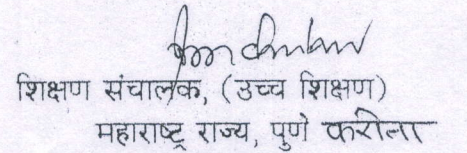 शिक्षण संचालक, (उच्च शिक्षण)
महाराष्ट्र राज्य, पुणे करीता